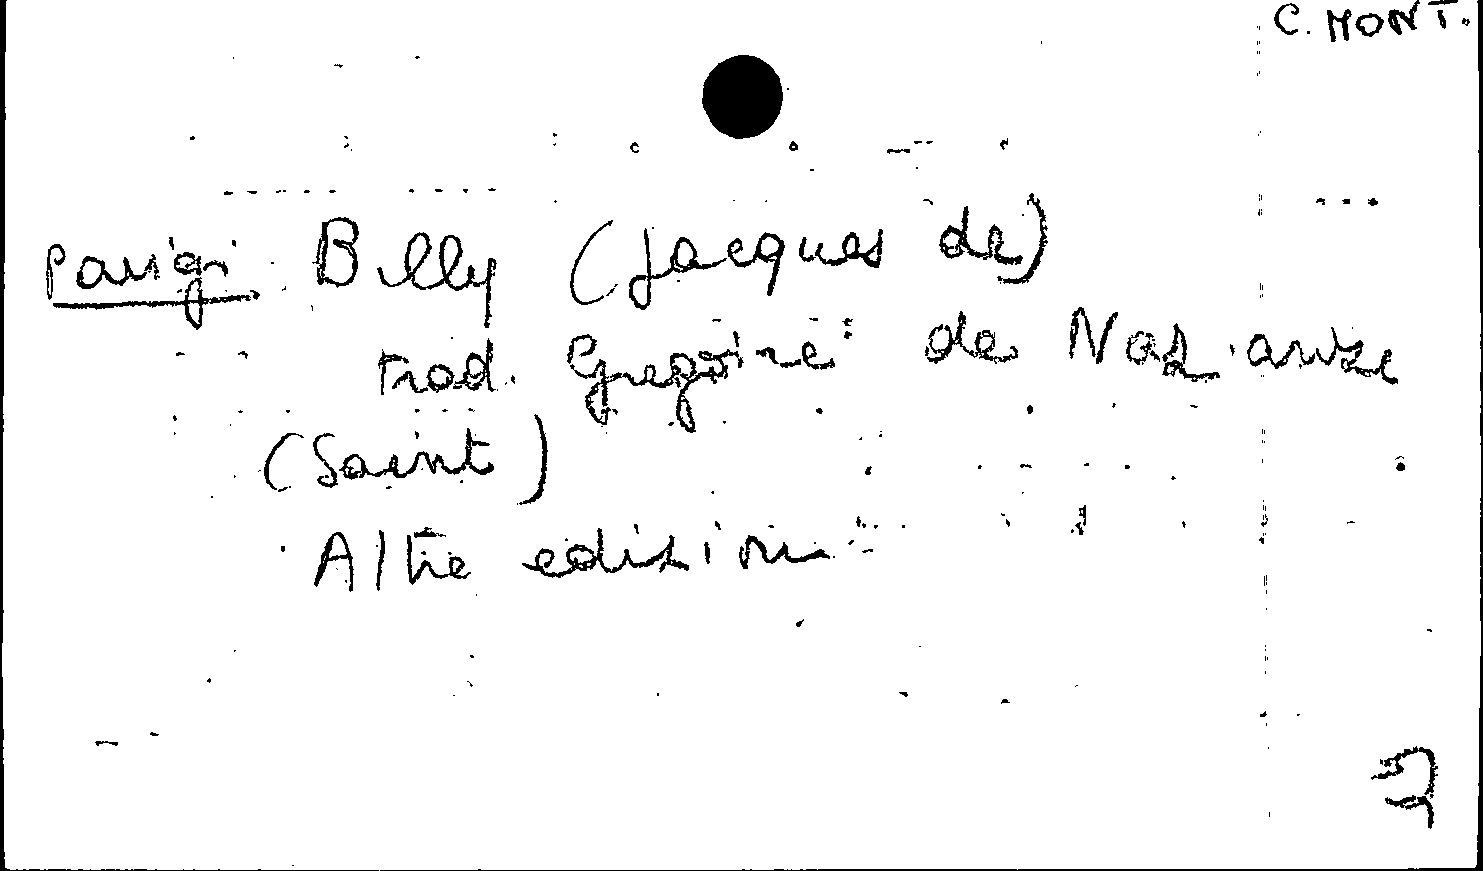 C. MONT.
Parigi Billy (Jacques de)
trad. Gregoire de Nazianze
(Saint)
Altre edizioni